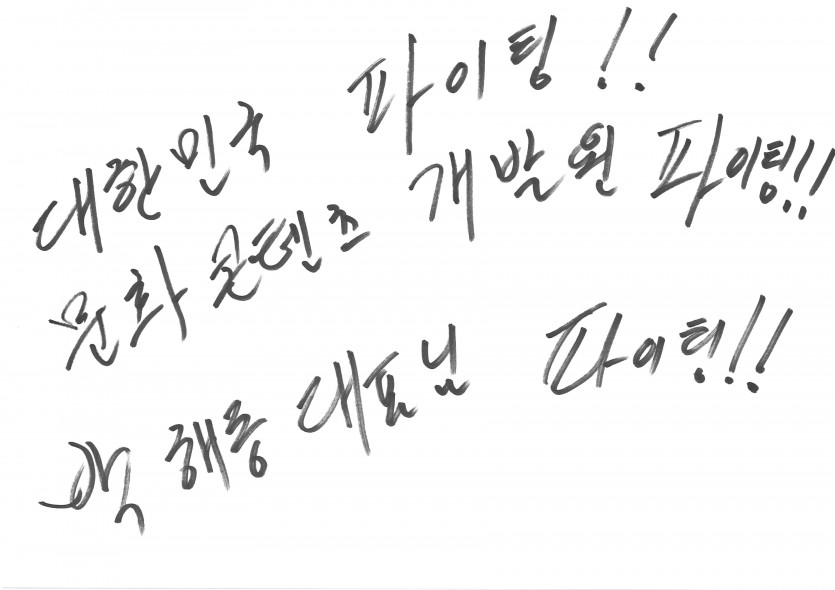 대한민국 파이팅!!
문화콘텐츠 개발원 파이팅!!
해룡 대표님 파이팅!!